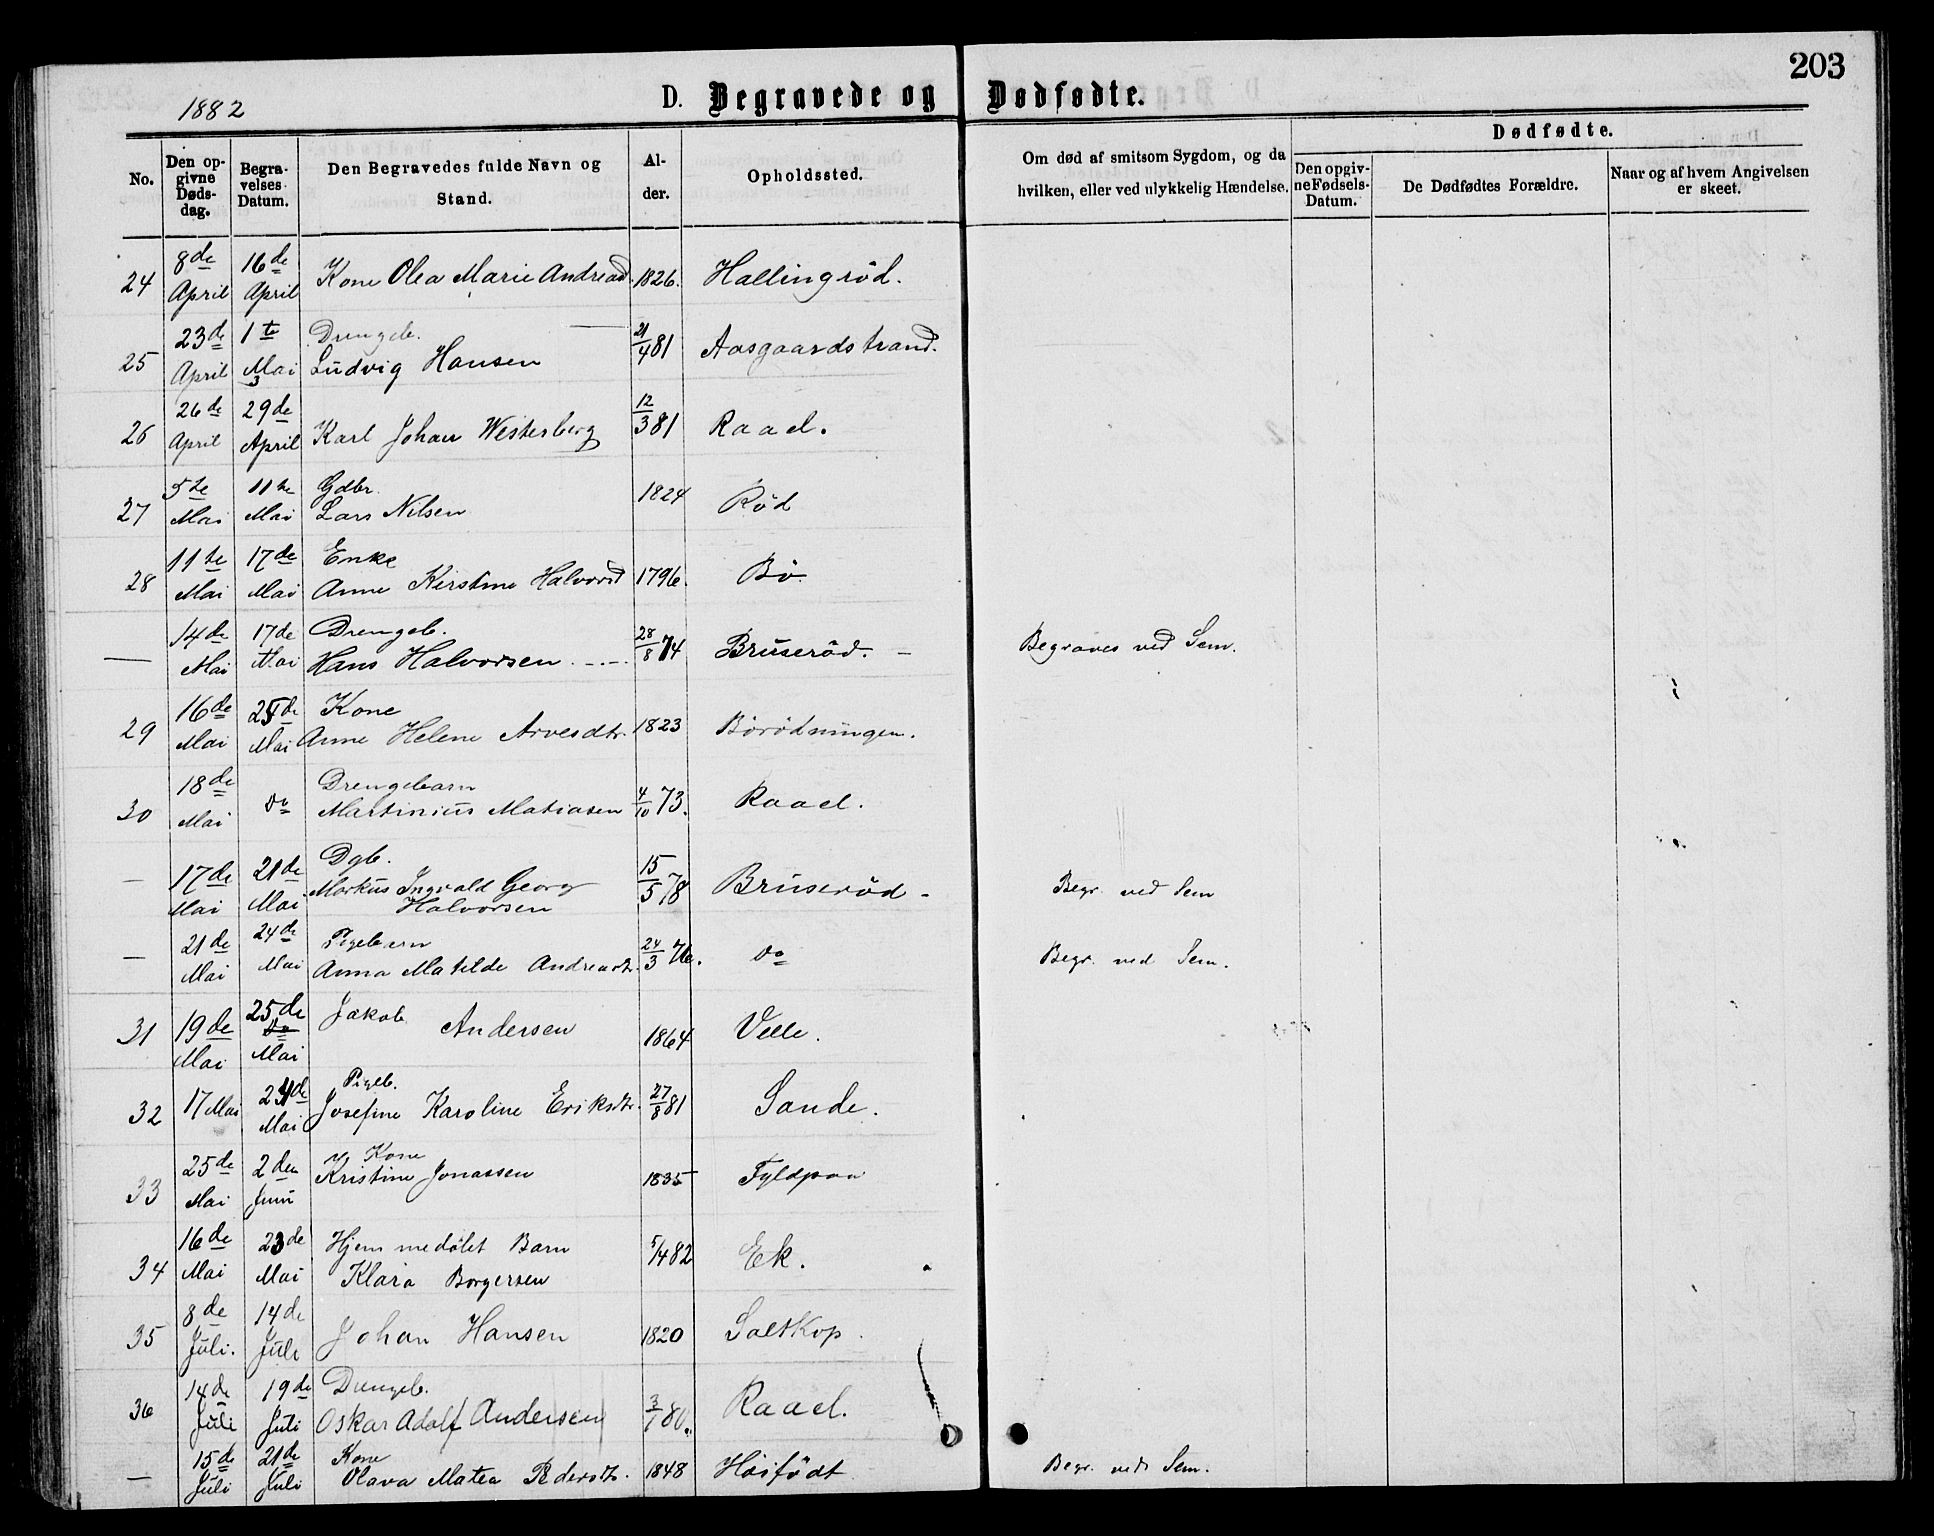 203
1882
D. Begravede og Dødfødte.
No.
Den opgivne Dødsdag.
Begravelses Datum.
Den Begravedes fulde Navn og Stand.
Alder.
Opholdssted.
Om død af smitsom Sygdom, og da hvilken, eller ved ulykkelig Hændelse.
Dødfødte.
Den opgivne Fødsels-Datum.
De Dødfødtes Forældre.
Naar og af hvem Angivelsen er skeet.
24 8de April 16de April Kone Olea Marie Andreasd. 1826. Hallingröd.
25 23de April 1te Mai Drengeb. Ludvig Hansen 21/4 81 Aasgaardstrand.
26 26de April 29de April Karl Johan Westerberg 12/3 81 Raael.
27 5te Mai 11te Mai Gdbr. Lars Nilsen 1824 Röd
28 11te Mai 17de Mai Enke Anne Kirstine Halvorsd 1796. Bö
— 14de Mai 17de Mai Drengeb. Hans Halvorsen 28/8 74 Bruseröd. — Begraves ved Sem.
29 16de Mai Mai Kone Anne Helene Arvesdtr. 1823 Börödningen.
30 18de Mai do Drengebarn Martinius Matiasen 4/10 73. Raael.
— 17de Mai 21de Mai Dgb. Markus Ingvald Georg Halvorsen 15/5 78 Bruseröd - Begr. ved Sem
— 21de Mai 24de Mai Pigebarn Anna Matilde Andreasdtr. 24/3 76. do Begr. ved Sem.
31 19de Mai 25de Mai Jakob Andersen 1864 Velle.
32 17 Mai 24de Mai Pigeb. Josefine Karoline Eriksdtr. 27/8 81 Sande.
33 25de Mai 2den Juni Kone Kristine Jonassen 1835 Fyldpaa
34 16de Mai 23de Mai Hjemmedöbt Barn Klara Borgersen 5/4 82 Ek.
35 8de Juli. 14de Juli Johan Hansen 1820 Saltkop.
36 14de Juli 19de Juli Drengeb. Oskar Adolf Andersen 3/1 80. Raael.
— 15de Juli 21de Juli Kone Olava Matea Pedersdtr. 1848 Höifödt Begr. ved Sem.